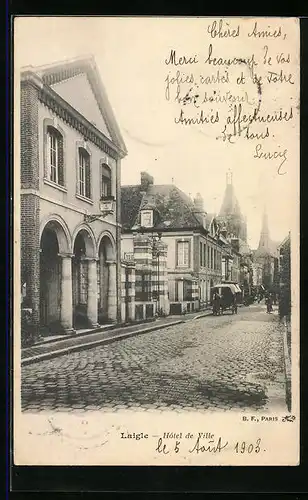 Chères Amies,
Merci beaucoup de vos
jolies cartes et de votre
bon souvenir.
Amitiés affectueuses
de tous.
Lucie
Laigle — Hôtel de Ville
B. F., PARIS
le 5 Août 1903.